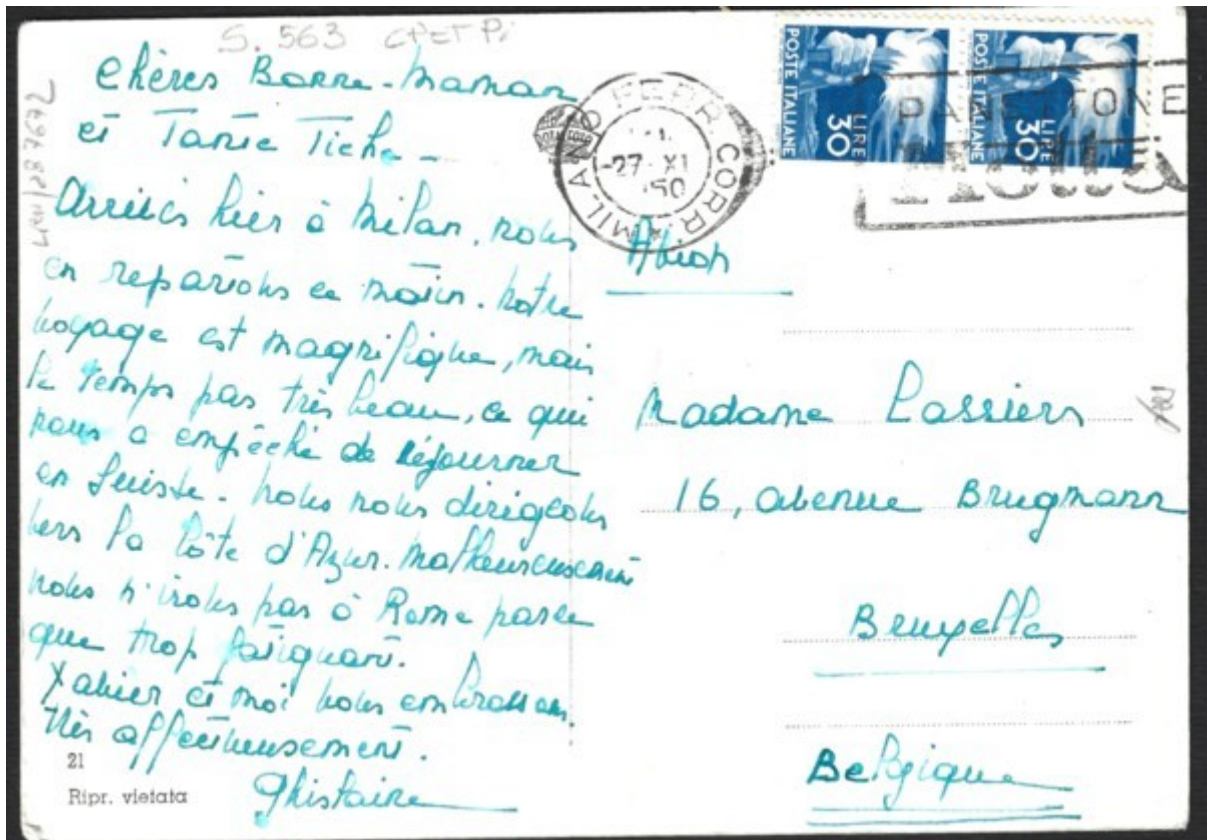 S. 563
Chères Bonne-Maman
et Tante Tiche -
Arrivés hier à Milan, nous
en repartons ce matin. Notre
voyage est magnifique, mais
le temps pas très beau, ce qui
nous a empêché de séjourner
en Suisse. Nous nous dirigeons
vers la Côte d'Azur. Malheureusement
nous n'irons pas à Rome parce
que trop fatiguant.
Xavier et moi vous embrassons
très affectueusement.
Ghislaine
21
Ripr. vietata
POSTE ITALIANE
LIRE
30
POSTE ITALIANE
LIRE
30
MILANO FERR. CORR.
-27. XI
50
PANETTONE
Motta
Avion
Madame Lassiers
16, avenue Brugmann
Bruxelles
Belgique